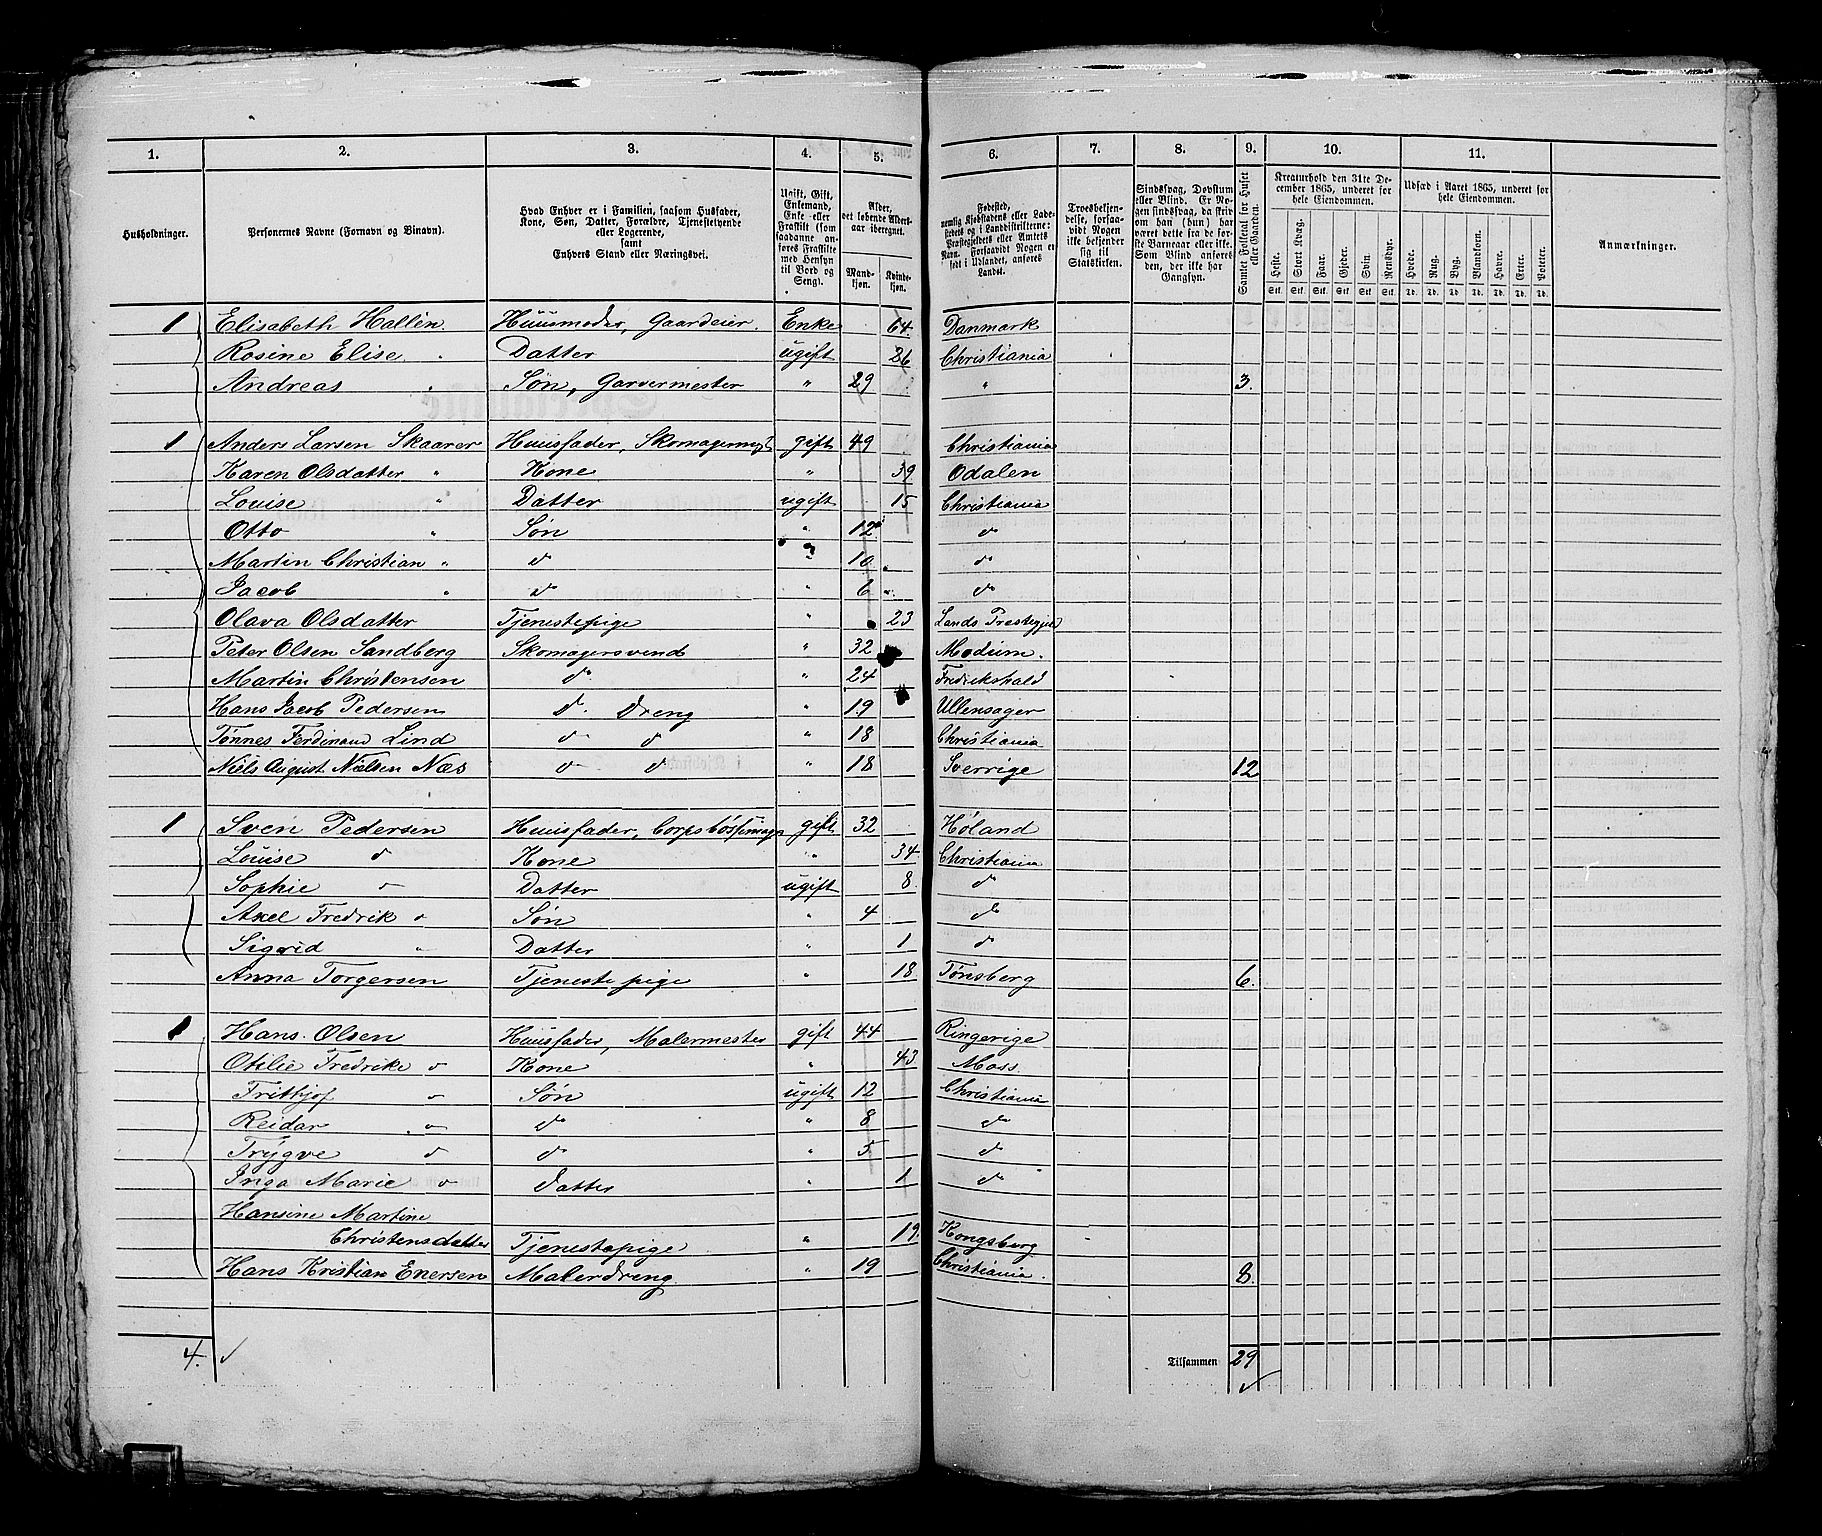 1. 2. 3. 4. 5. 6. 7. 8. 9. 10. 11.
Husholdninger.
Personernes Navne (Fornavn og Binavn).
Hvad Enhver er i Familien, saasom Husfader,
Kone, Søn, Datter, Forældre, Tjenestetyende
eller Logerende,
samt
Enhvers Stand eller Næringsvei.
Ugift, Gift,
Enkemand,
Enke eller
Fraskilt (som
saadanne an-
føres Fraskilte
med Hensyn
til Bord og
Seng).
Alder,
det løbende Alders-
aar iberegnet.
Mand-
kjøn.
Kvinde-
kjøn.
Fødested,
nemlig Kjøbstadens eller Lade-
stedets og i Landdistrikterne:
Præstegjeldets eller Amtets
Navn. Forsaavidt Nogen er
født i Udlandet, anføres
Landet.
Troesbekjen-
delse, forsaa-
vidt Nogen
ikke bekjender
sig til
Statskirken.
Sindssvag, Døvstum
eller Blind. Er No-
gen sindssvag, da skriv
om han (hun) har
været dette fra de før-
ste Barneaar eller ikke.
Som Blind anføres
den, der ikke har
Gangsyn.
Samlet Folketal for Huset
eller Gaarden.
Kreaturhold den 31te De-
cember 1865, underet for
hele Eiendommen.
Heste. Stort Kvæg. Faar. Gjeder. Svin. Rensdyr.
Stk. Stk. Stk. Stk. Stk. Stk.
Udsæd i Aaret 1865, underet for
hele Eiendommen.
Hvede. Rug. Byg. Blandkorn. Havre. Erter. Poteter.
Td. Td. Td. Td. Td. Td. Td.
Anmærkninger.
1 Elisabeth Hallén. Huusmoder, Gaardeier. Enke 64. Danmark
Rosine Elise " Datter ugift 26 Christiania
Andreas " Søn, Garvermester " 29 " 3.
1 Anders Larsen Skaarer Huusfader, Skomagermest gift 49 Christiania
Karen Olsdatter " Kone " 39 Odalen
Louise " Datter ugift 15 Christiania
Otto " Søn " 12 d
Martin Christian " d " 10 d
Jacob " d " 6 d
Olava Olsdatter Tjenestepige " 23 Lands Prestegjeld
Peter Olsen Sandberg Skomagersvend " 32 Modum.
Martin Christensen d " 24 Fredrikshald
Hans Jacob Pedersen d. Dreng " 19 Ullensager
Tønnes Ferdinand Lind d d " 18 Christiania
Niels August Nielsen Næs d d " 18 Sverrige 12
1 Sven Pedersen Huusfader, Corpsbøssemager gift 32 Høland
Louise d Kone " 34 Christiania
Sophie d Datter ugift 8. d
Axel Fredrik d Søn " 4 d
Sigrid " Datter " 1 d
Anna Torgersen Tjenestepige " 18 Tønsberg 6.
1 Hans Olsen Huusfader, Malermester gift 44 Ringerige
Otilie Fredrike d Kone " 43 Moss
Frithjof d Søn ugift 12 Christiania
Reidar d d " 8 d
Trygve d d " 5 d
Inga Marie d Datter " 1 d
Hansine Martine
Christensdatter Tjenestepige " 19. Kongsberg
Hans Kristian Enersen Malerdreng " 19 Christiania. 8.
4. Tilsammen 29